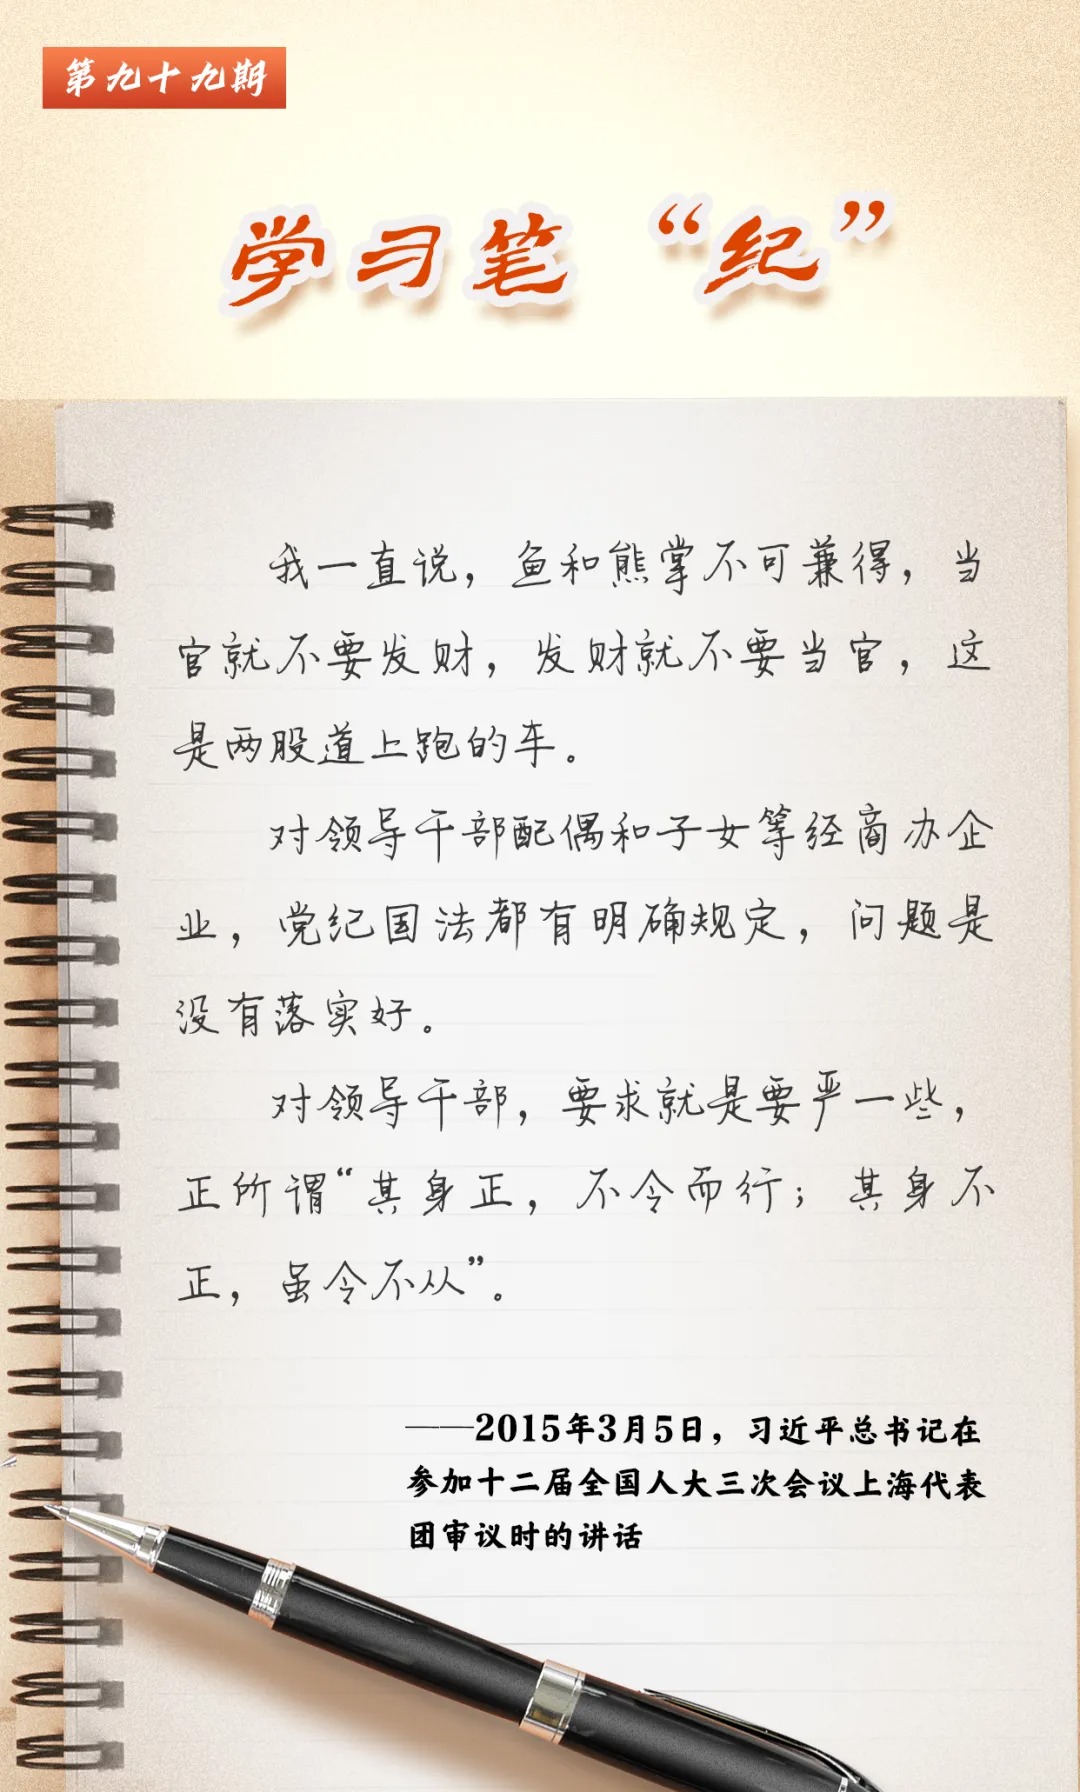 第九十九期
学习笔“纪”
我一直说，鱼和熊掌不可兼得，当
官就不要发财，发财就不要当官，这
是两股道上跑的车。
对领导干部配偶和子女等经商办企
业，党纪国法都有明确规定，问题是
没有落实好。
对领导干部，要求就是要严一些，
正所谓“其身正，不令而行；其身不
正，虽令不从”。
——2015年3月5日，习近平总书记在
参加十二届全国人大三次会议上海代表
团审议时的讲话